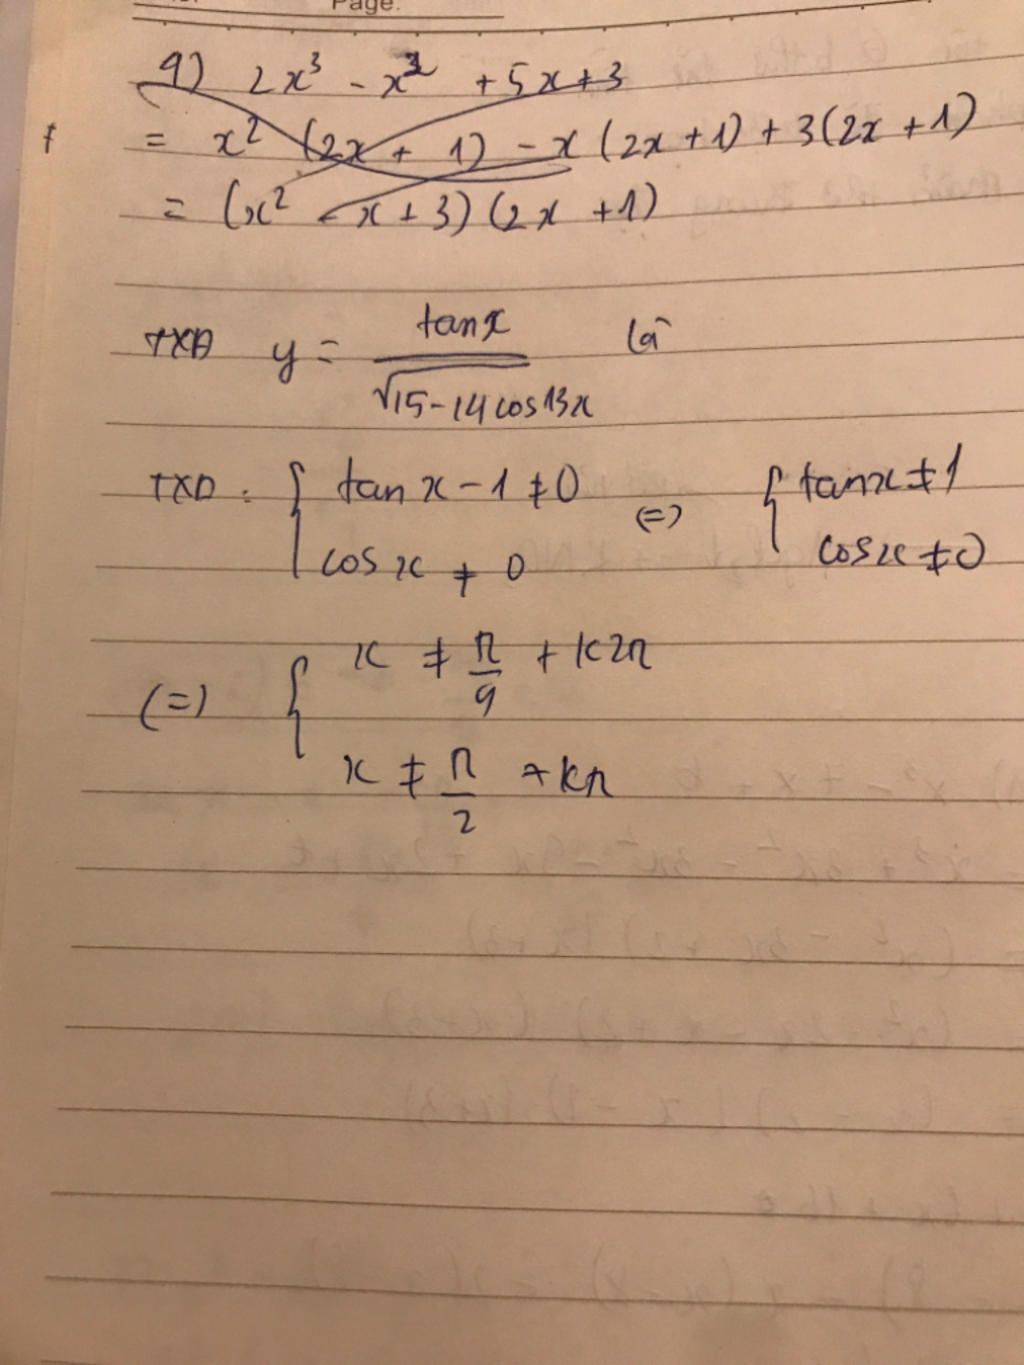 Page.
9) 2x³ - x² + 5x + 3
= x² (2x + 1) - x (2x + 1) + 3(2x + 1)
= (x² - x + 3) (2x + 1)
TXĐ y = tanx / √15-14cos13x là
TXD : { tan x - 1 ≠ 0 (=) { tanx ≠ 1
cos x ≠ 0 cosx ≠ 0
(=) { x ≠ π/9 + k2π
x ≠ π/2 + kπ